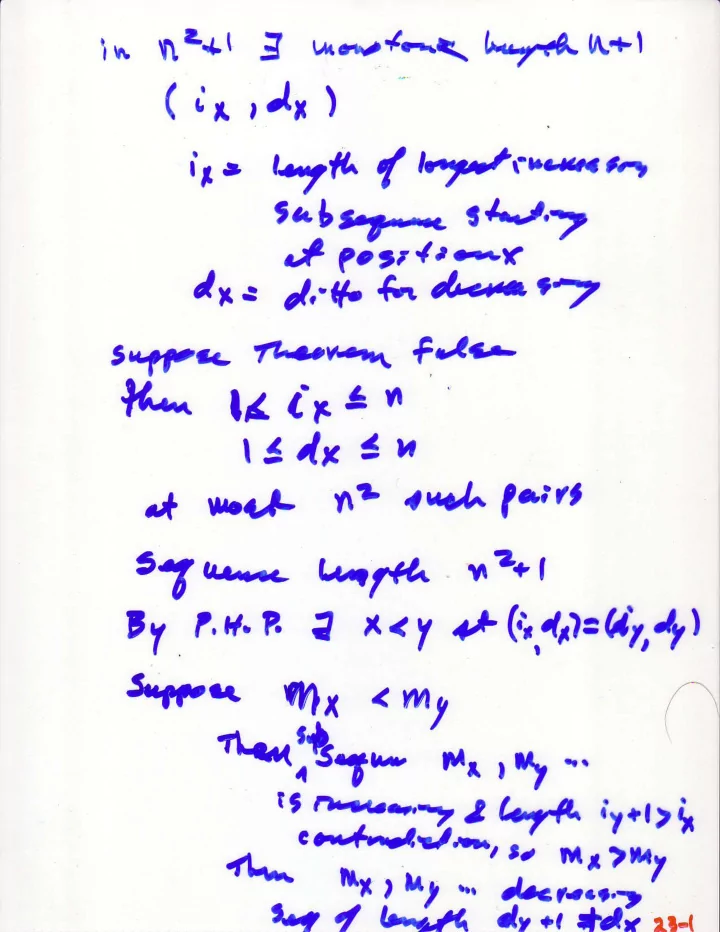 in n²+1 ∃ monotone length n+1
(ix, dx)
ix = length of longest increasing
subsequence starting
at position x
dx = ditto for decreasing
suppose Theorem false
then 1 ≤ ix ≤ n
1 ≤ dx ≤ n
at most n² such pairs
Sequence length n²+1
By P.H.P. ∃ x<y st (ix, dx)=(iy, dy)
Suppose mx < my
Then sub sequen mx, my ...
is increasing & length iy+1>ix
contradiction, so mx>my
Then mx, my ... decreasing
Seq of length dy+1 ≠dx 23-1